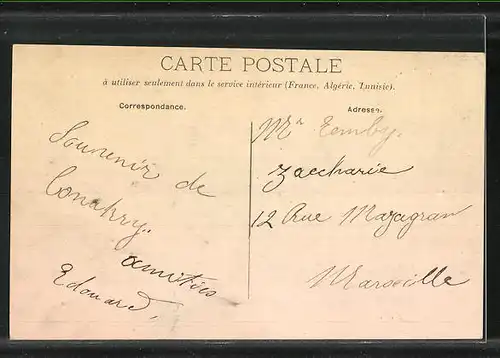 CARTE POSTALE
à utiliser seulement dans le service intérieur (France, Algérie, Tunisie).
Correspondance.
Adresse.
Souvenir de
Conakry.
amitiés
Edouard,
Mr
Zaccharie
12 Rue Mazagran
Marseille